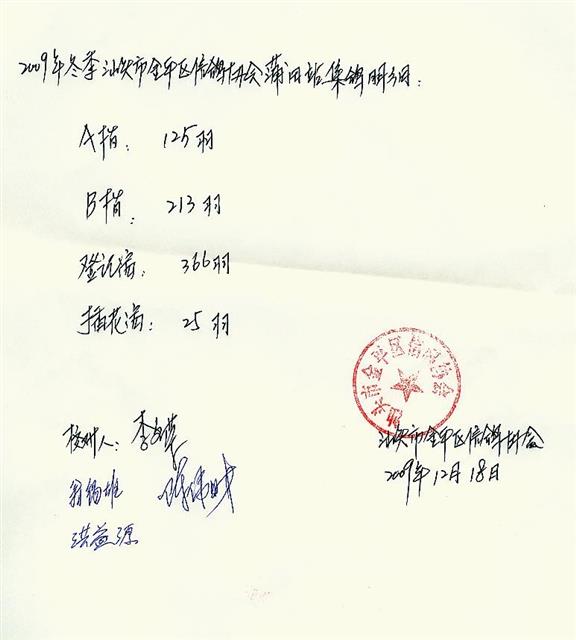 2009年冬季汕头市金平区信鸽协会莆田站集鸽明细:
A指: 125羽
B指: 213羽
登记费: 366羽
插花费: 25羽
汕头市金平区信鸽协会
校对人: 李
汕头市金平区信鸽协会
2009年12月18日
洪益源